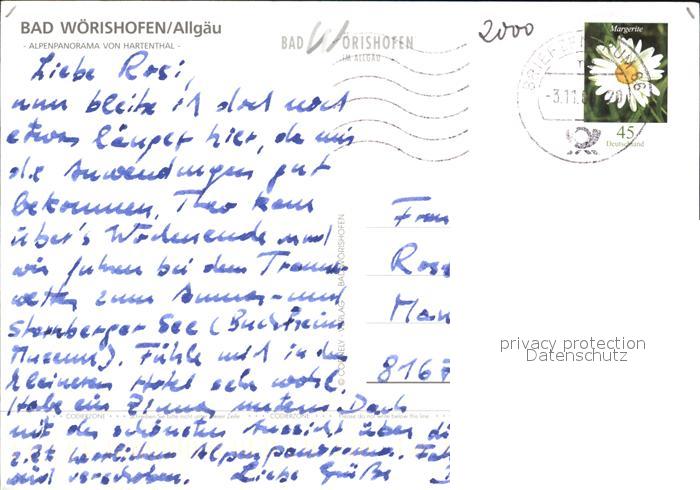 BAD WÖRISHOFEN/Allgäu
- ALPENPANORAMA VON HARTENTHAL -
BAD WÖRISHOFEN
IM ALLGÄU
2000
Margerite
BRIEFZENTRUM 86
-3.11.
45
Deutschland
Liebe Rosi,
nun bleibe ich doch noch
etwas länger hier, da mir
die Anwendungen gut
bekommen. Theo kam
über's Wochenende und
wir fuhren bei dem Traum-
wetter zum Ammer- und
Starnberger See (Buchheim
Museum). Fühle mich in dem
kleineren Hotel sehr wohl.
Habe ein Zimmer unterm Dach
mit der schönsten Aussicht über di
z.Zt. herrlichen Alpenpanorama.
und verschoben. Liebe Grüße
Frau
Ros
Man
8167
© CONNELY VERLAG BAD WÖRISHOFEN
CODIERZONE
privacy protection
Datenschutz